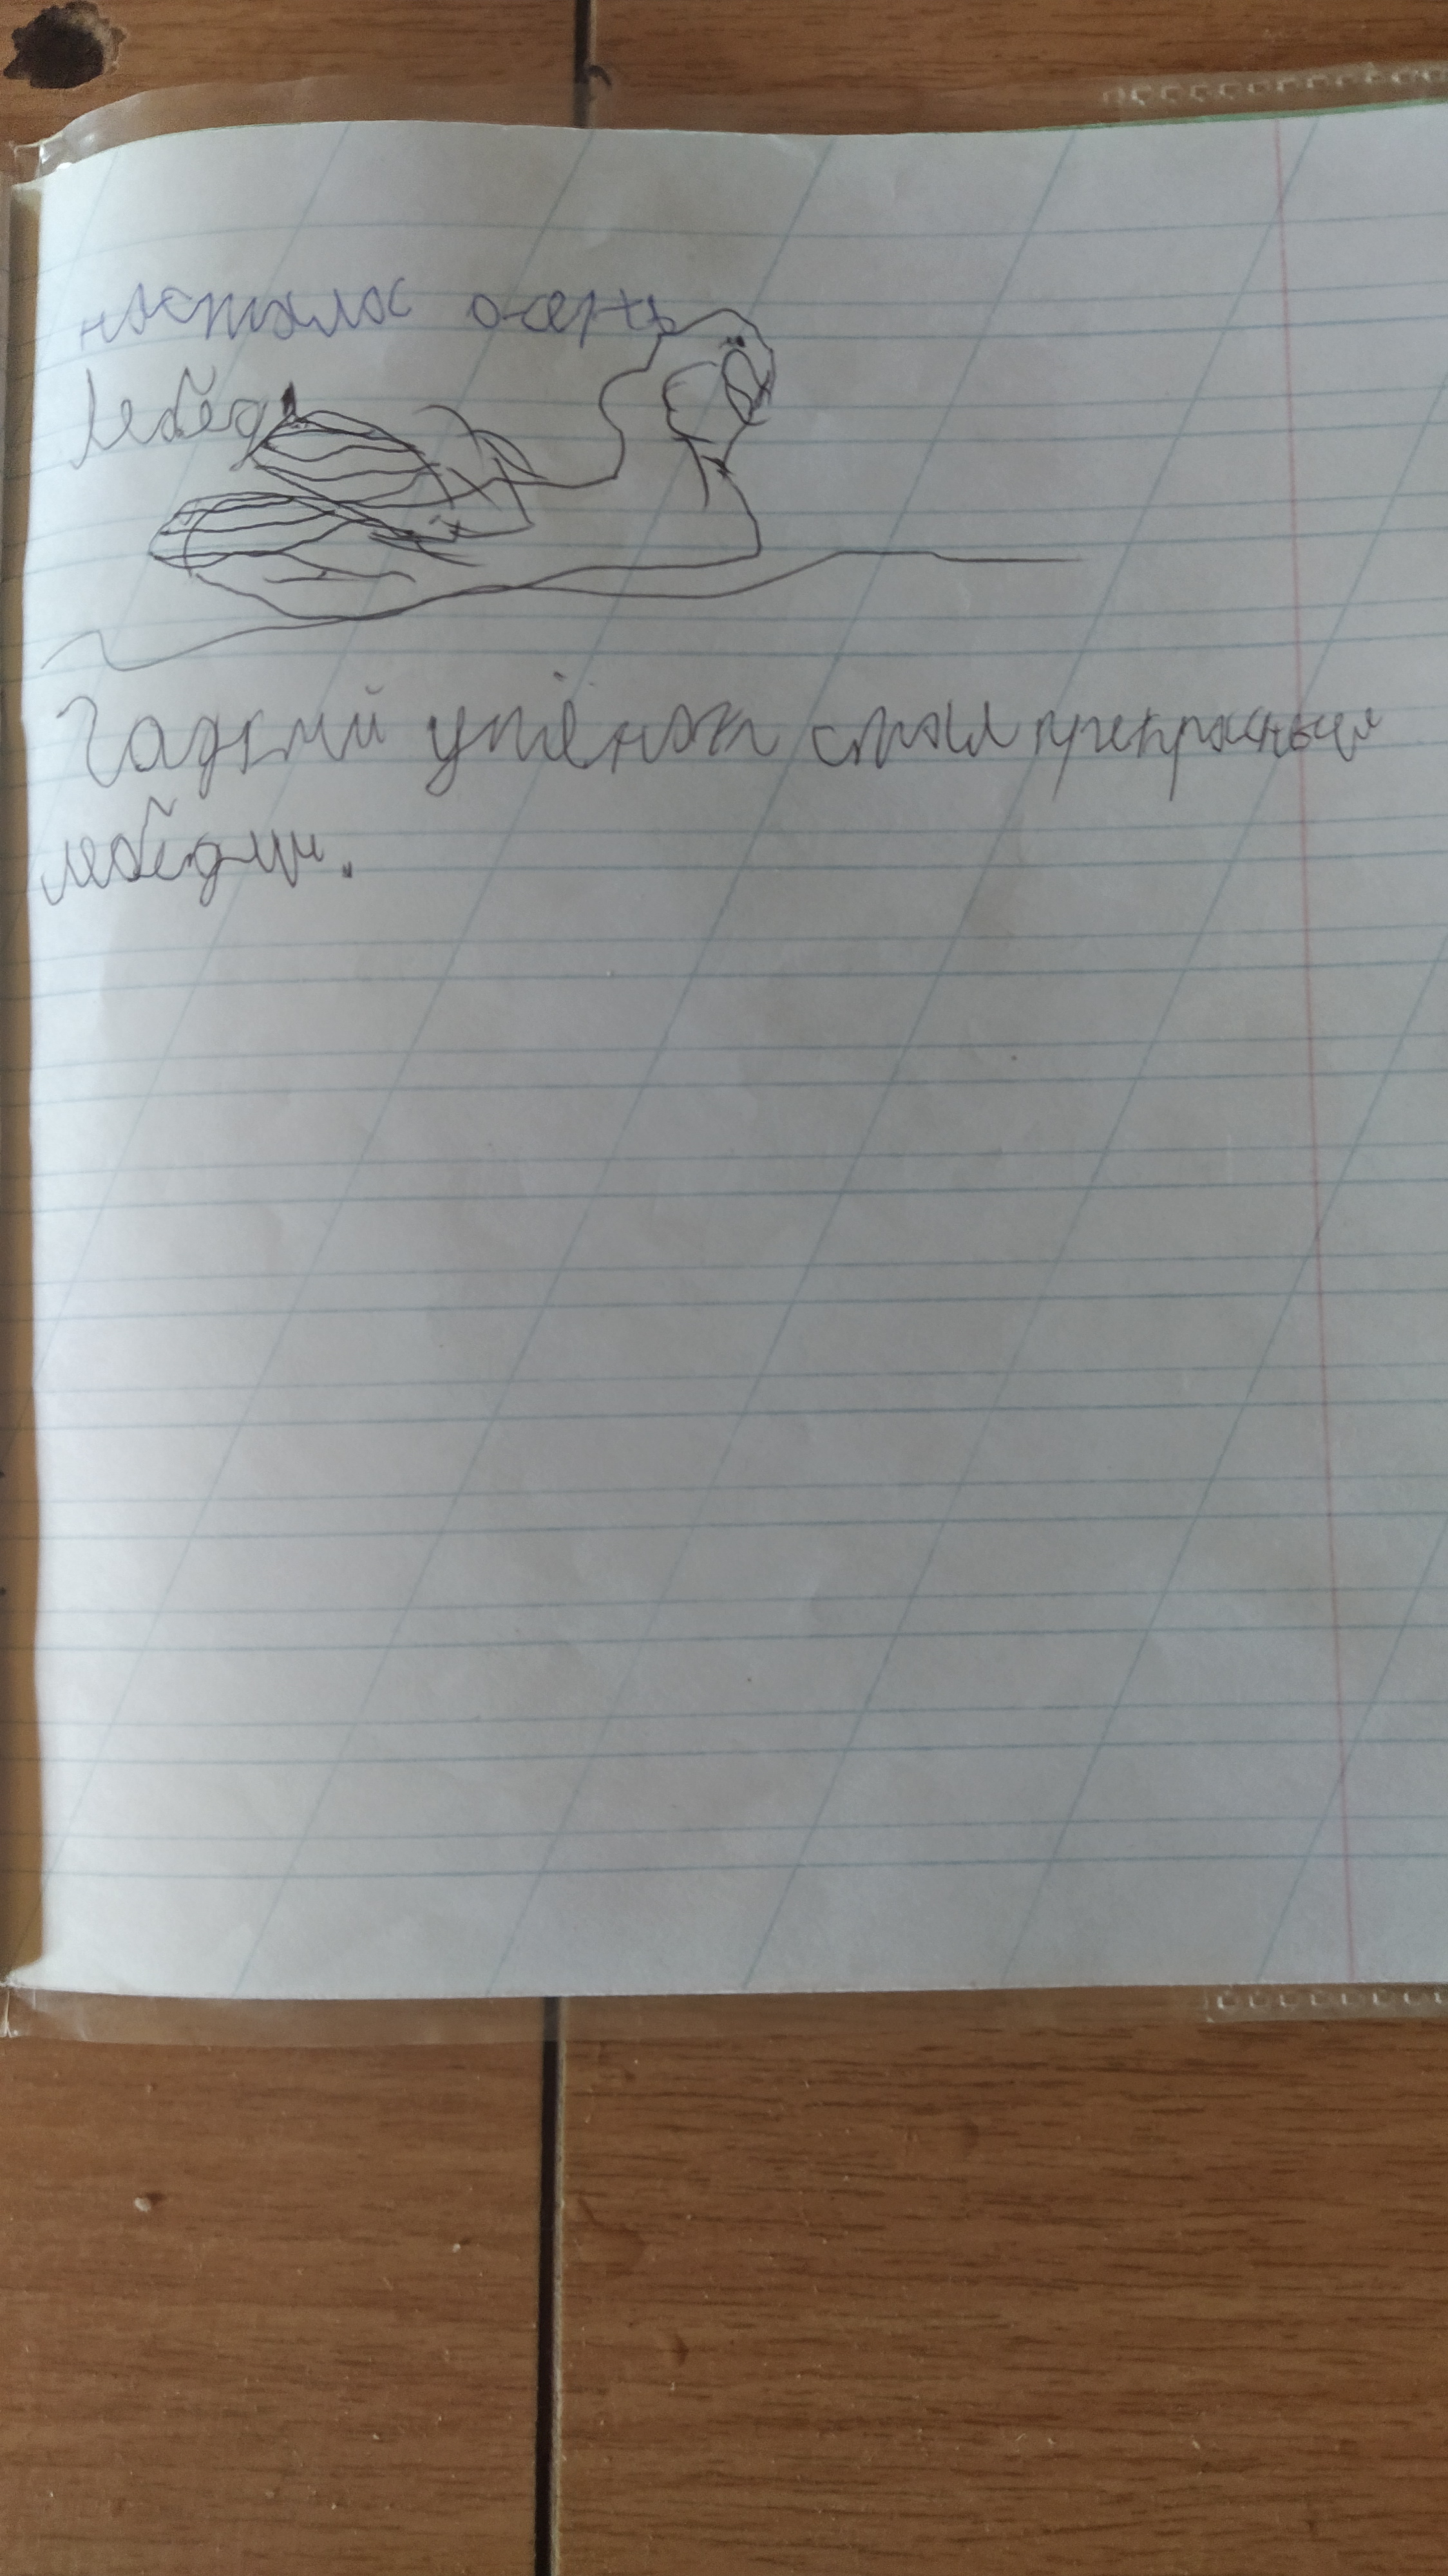 насталас осень
Лебедь
Гадкий утёнок стал прекрасным
лебедим.